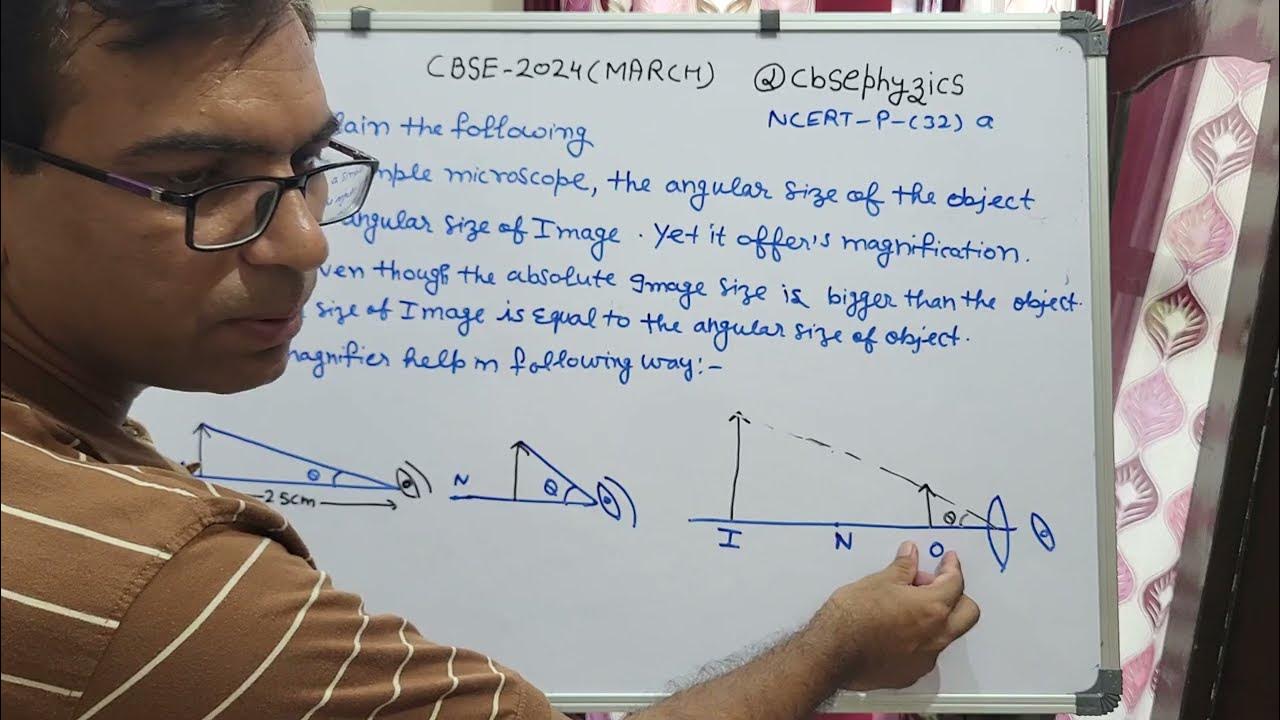 CBSE-2024(MARCH) @cbsephyzics
NCERT-P-(32) a
lain the following
mple microscope, the angular size of the object
angular size of Image. Yet it offer's magnification.
ven though the absolute Image size is bigger than the object.
size of Image is equal to the angular size of object.
magnifier help in following way:-
θ
25cm
N
θ
θ
I
N
O